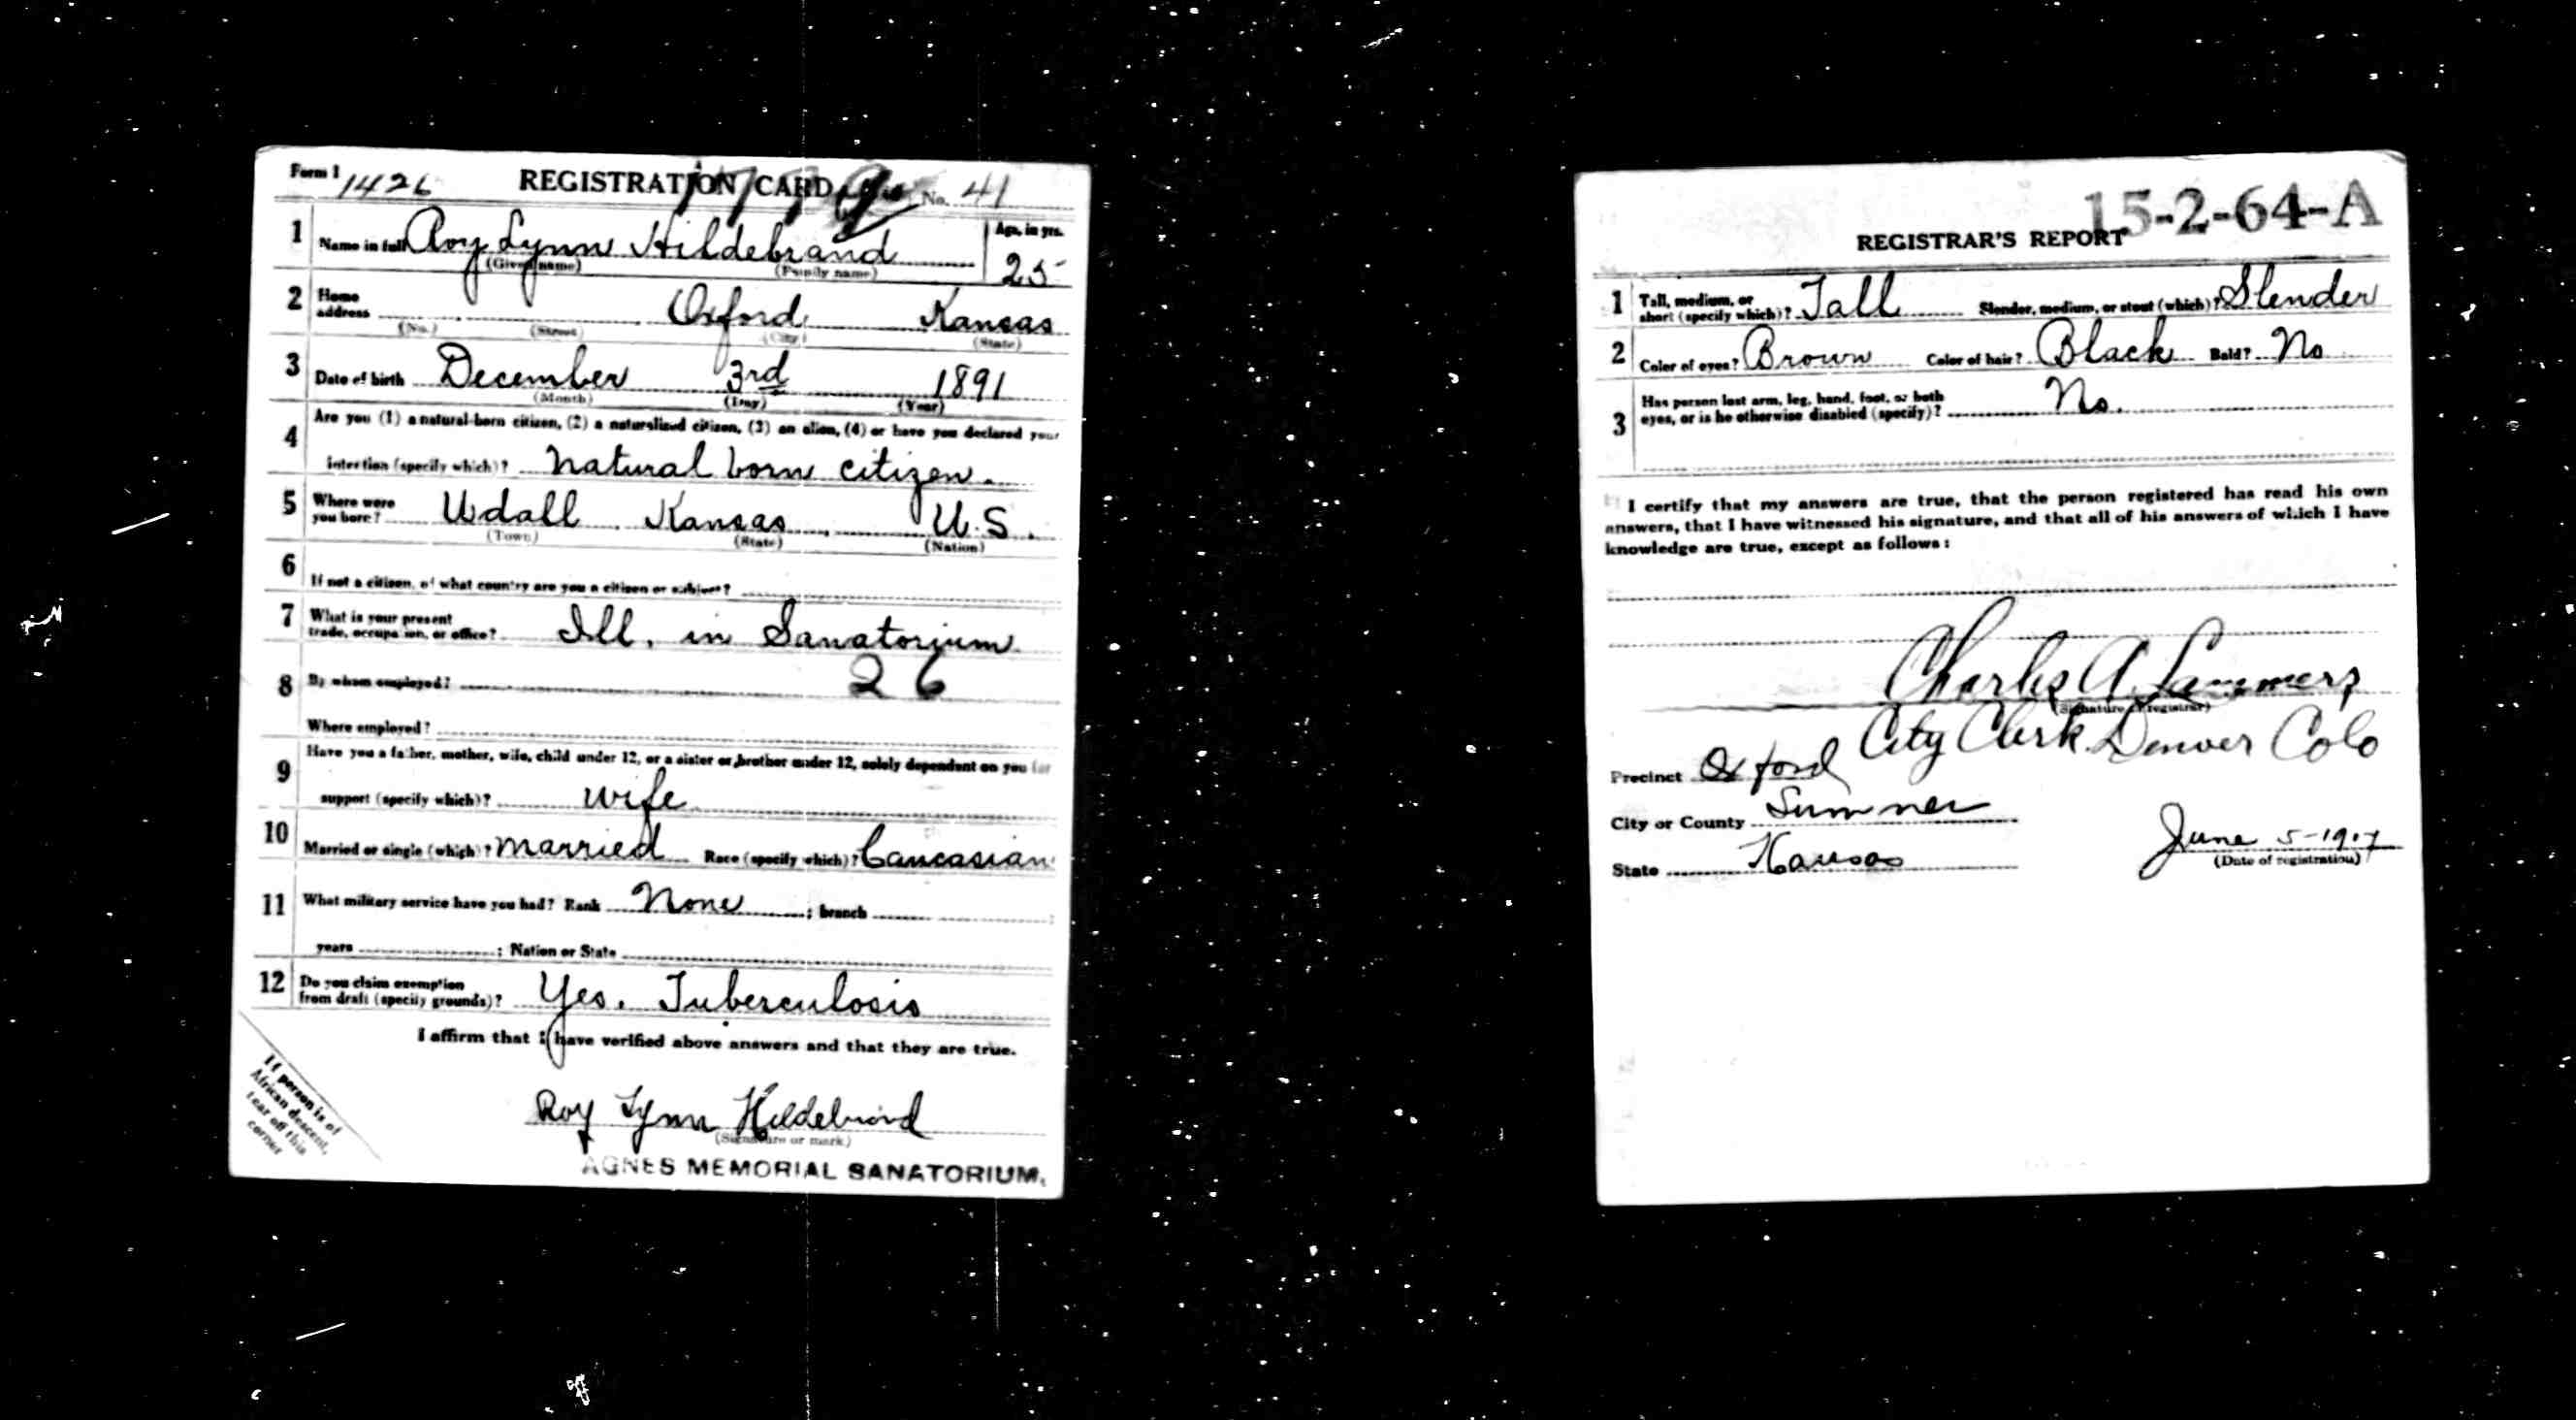 Form 1 1426 REGISTRATION CARD No. 41
1 Name in full Roy Lynn Hildebrand Age, in yrs.
(Given name) (Family name) 25
2 Home address Oxford Kansas
(No.) (Street) (City) (State)
3 Date of birth December 3rd 1891
(Month) (Day) (Year)
4 Are you (1) a natural-born citizen, (2) a naturalized citizen, (3) an alien, (4) or have you declared your
intention (specify which)? natural born citizen.
5 Where were you born? Udall Kansas U.S.
(Town) (State) (Nation)
6 If not a citizen, of what country are you a citizen or subject?
7 What is your present trade, occupation, or office? Ill, in Sanatorium
8 By whom employed? 26
Where employed?
9 Have you a father, mother, wife, child under 12, or a sister or brother under 12, solely dependent on you for
support (specify which)? wife
10 Married or single (which)? married Race (specify which)? Caucasian
11 What military service have you had? Rank None ; branch ;
years ; Nation or State
12 Do you claim exemption from draft (specify grounds)? Yes. Tuberculosis
I affirm that I have verified above answers and that they are true.
Roy Lynn Hildebrand
(Signature or mark)
AGNES MEMORIAL SANATORIUM,
If person is of
African descent,
tear off this
corner
15-2-64-A
REGISTRAR'S REPORT
1 Tall, medium, or short (specify which)? Tall Slender, medium, or stout (which)? Slender
2 Color of eyes? Brown Color of hair? Black Bald? No
3 Has person lost arm, leg, hand, foot, or both
eyes, or is he otherwise disabled (specify)? No.
I certify that my answers are true, that the person registered has read his own
answers, that I have witnessed his signature, and that all of his answers of which I have
knowledge are true, except as follows:
Charles A. Lammers
(Signature of registrar)
City Clerk. Denver Colo
Precinct Oxford
City or County Sumner
State Kansas June 5-1917
(Date of registration)